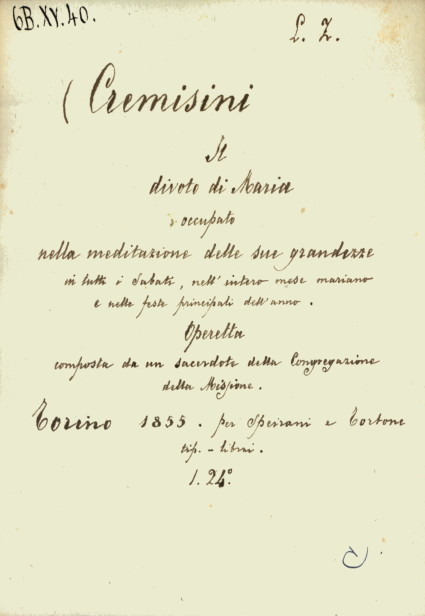 6B.XV.40.
L. Z.
( Cremisini
Il
divoto di Maria
occupato
nella meditazione delle sue grandezze
in tutti i Sabati, nell' intero mese mariano
e nelle feste principali dell' anno.
Operetta
composta da un sacerdote della Congregazione
della Missione.
Torino 1855. per Speirani e Tortone
tip. - librai.
1. 24°.